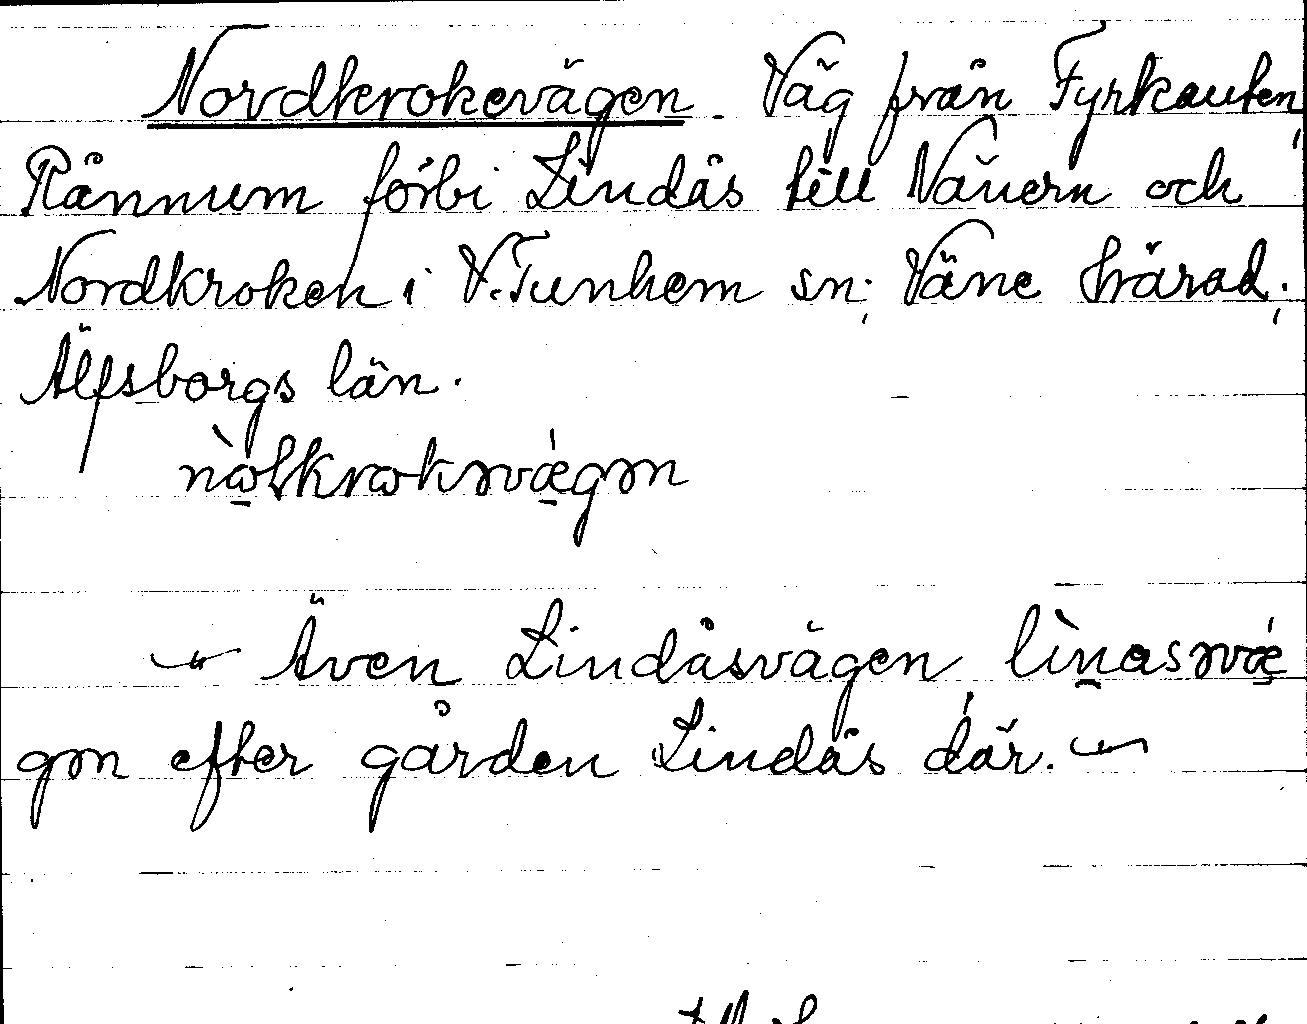 Nordkrokevägen. Väg från Fyrkanten,
Rånnum förbi Lindås till Vänern och
Nordkroken i V. Tunhem sn; Väne härad;
Älfsborgs län.
nò̠lkrokəvǽ̠gən
Även Lindåsvägen, lìn̠asəvǽ̠
gən efter gården Lindås där.